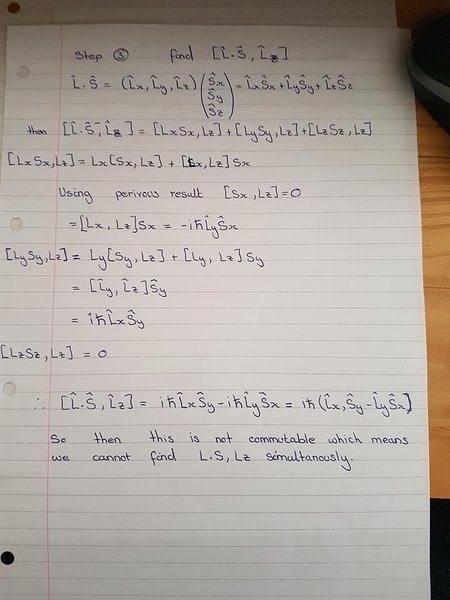 Step ③ find [L̂.Ŝ, L̂z]
L̂.Ŝ = (L̂x, L̂y, L̂z)(Ŝx Ŝy Ŝz) = L̂xŜx + L̂yŜy + L̂zŜz
then [L̂.Ŝ, L̂z] = [LxSx,Lz]+[LySy,Lz]+[LzSz,Lz]
[LxSx,Lz] = Lx[Sx,Lz] + [Lx,Lz]Sx
Using perivous result [Sx,Lz]=0
=[Lx, Lz]Sx = -iħL̂yŜx
[LySy,Lz] = Ly[Sy,Lz] + [Ly, Lz]Sy
= [L̂y, L̂z]Ŝy
= iħL̂xŜy
[LzSz,Lz] = 0
∴ [L̂.Ŝ, L̂z] = iħL̂xŜy - iħL̂yŜx = iħ(L̂x,Ŝy - L̂yŜx]
So then this is not commutable which means
we cannot find L.S, Lz simultanously.